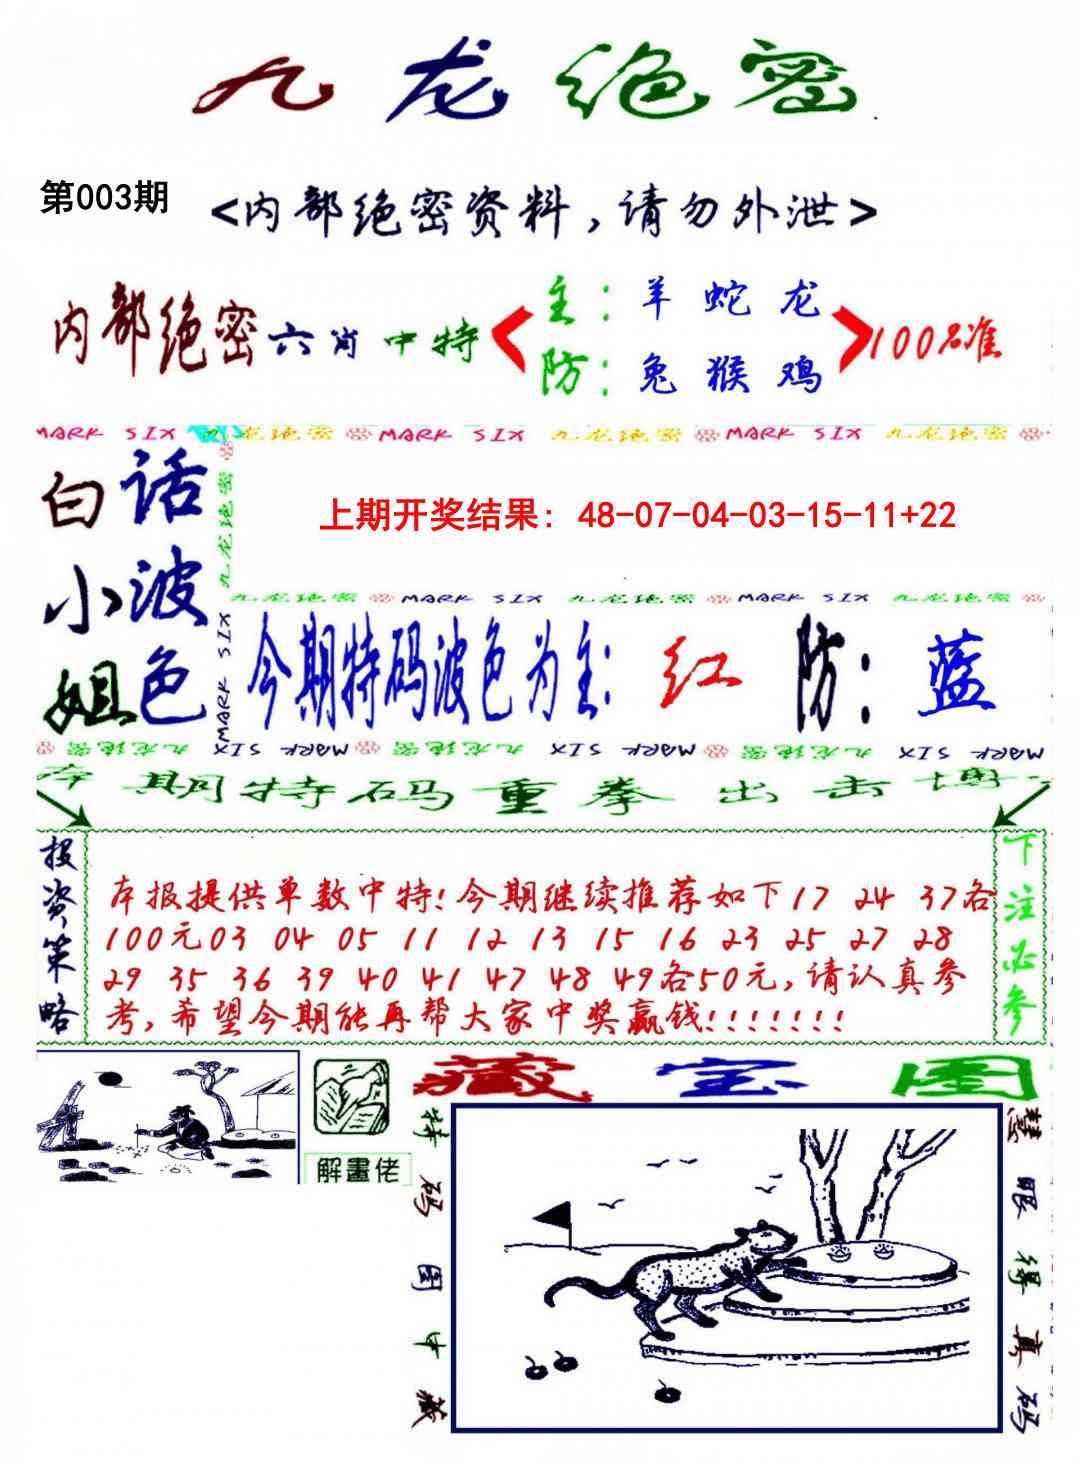 九龙绝密
第003期
<内部绝密资料，请勿外泄>
内部绝密六肖中特
主：羊 蛇 龙
防：兔 猴 鸡
100%准
MARK SIX 九龙绝密 MARK SIX 九龙绝密 MARK SIX 九龙绝密
白小姐
话波色
九龙绝密
MARK SIX
上期开奖结果: 48-07-04-03-15-11+22
九龙绝密 MARK SIX 九龙绝密 MARK SIX 九龙绝密
今期特码波色为主: 红 防: 蓝
九龙绝密 MARK SIX 九龙绝密 MARK SIX 九龙绝密 MARK SIX
本期特码重拳出击博
投资策略
本报提供单数中特!今期继续推荐如下17 24 37各
100元03 04 05 11 12 13 15 16 23 25 27 28
29 35 36 39 40 41 47 48 49各50元,请认真参
考,希望今期能再帮大家中奖赢钱!!!!!!!
下注必参
解畫佬
藏宝图
特码图中藏
慧眼得真码